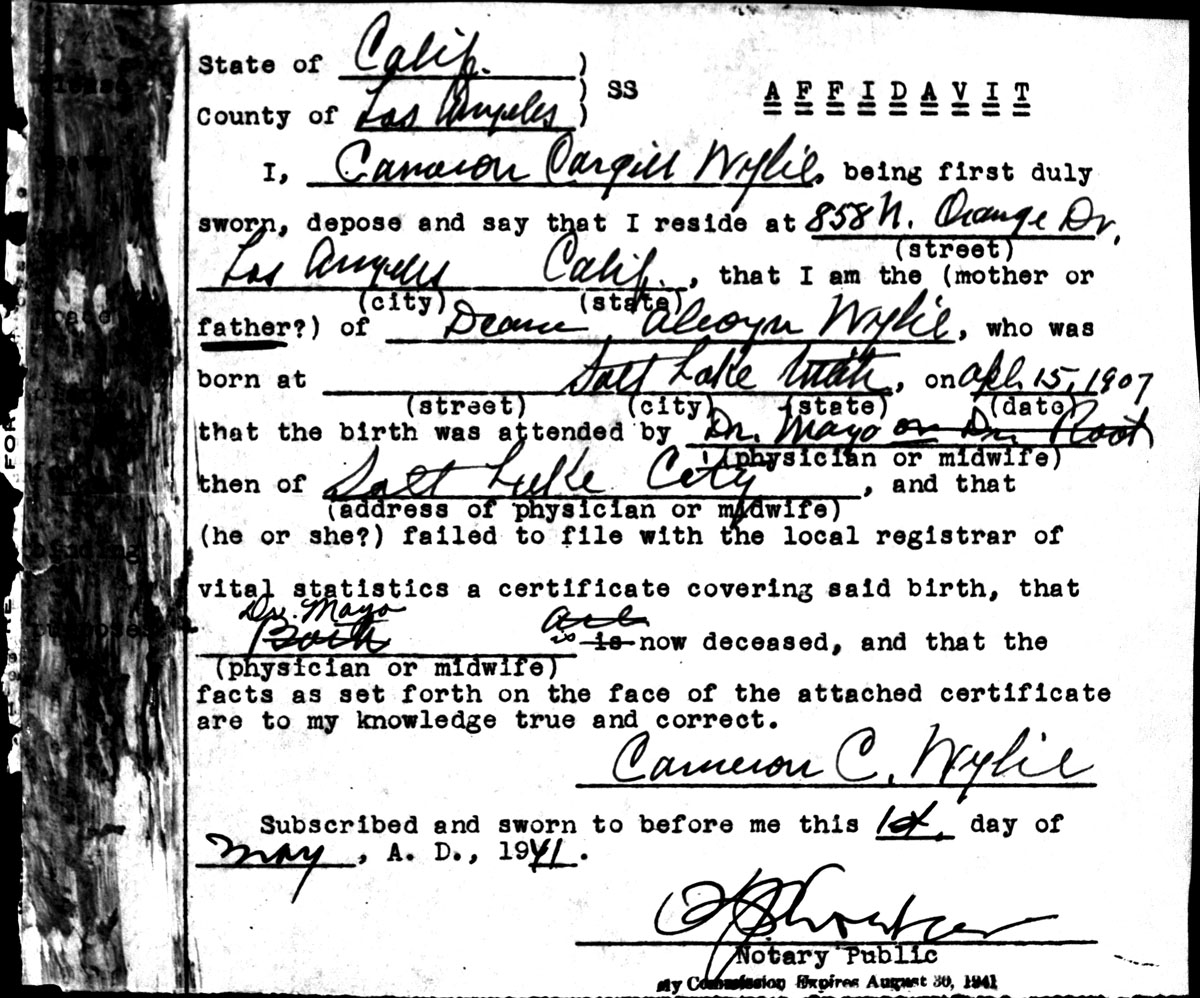 State of Calif. ) SS
AFFIDAVIT
County of Los Angeles )
I, Cameron Cargill Wylie, being first duly
sworn, depose and say that I reside at 858 N. Orange Dr.
(street)
Los Angeles Calif., that I am the (mother or
(city) (state)
father?) of Wylie, who was
born at Salt Lake Utah, on Apl. 15, 1907
(street) (city) (state) (date)
that the birth was attended by Dr. Mayo or Dr. Root
(physician or midwife)
then of Salt Lake City, and that
(address of physician or midwife)
(he or she?) failed to file with the local registrar of
vital statistics a certificate covering said birth, that
Dr. Mayo are
Both is is now deceased, and that the
(physician or midwife)
facts as set forth on the face of the attached certificate
are to my knowledge true and correct.
Cameron C. Wylie
Subscribed and sworn to before me this 1st day of
May, A. D., 1941.
Notary Public
My Commission Expires August 30, 1941
FOR
binding
purposes